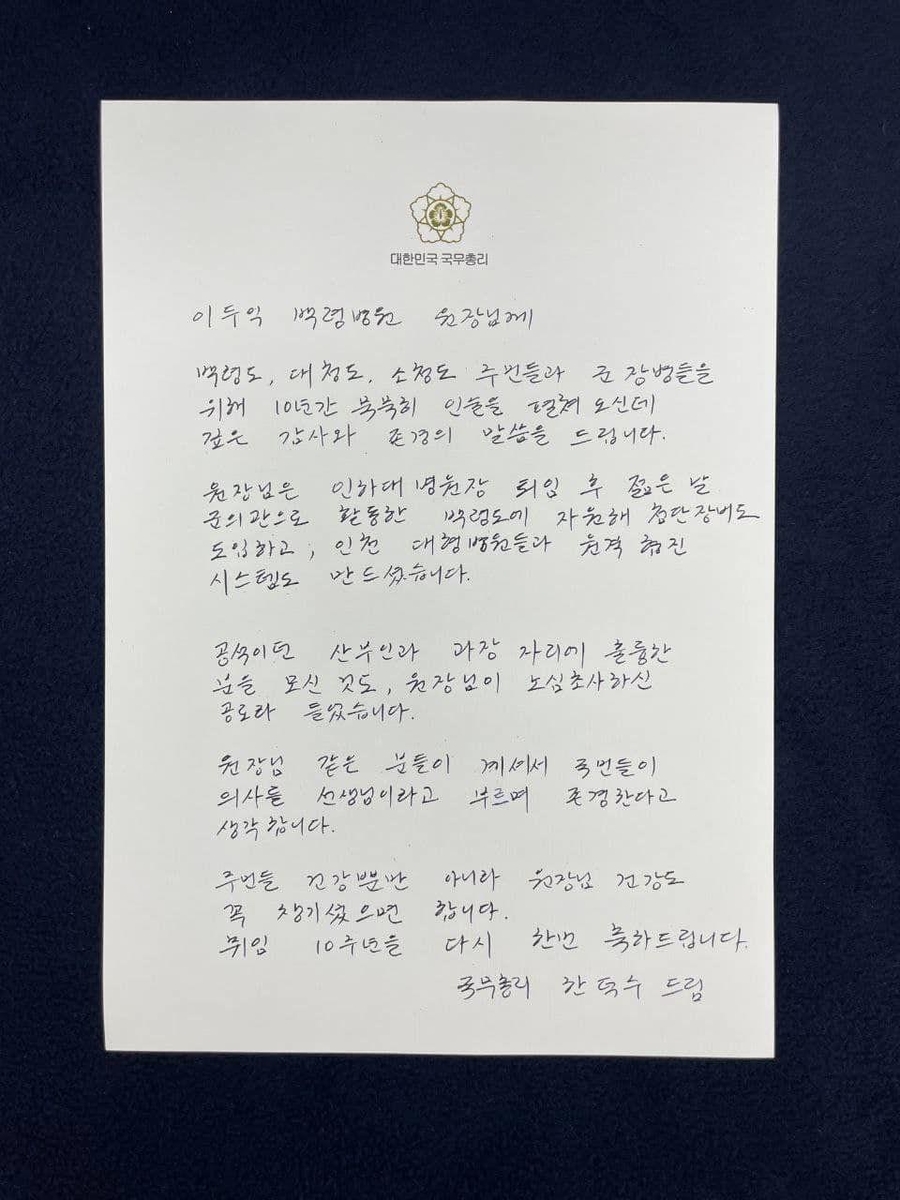 대한민국 국무총리
이두익 백령병원 원장님께
백령도, 대청도, 소청도 주민들과 군 장병들을
위해 10년간 묵묵히 인술을 펼쳐 오신데
깊은 감사와 존경의 말씀을 드립니다.
원장님은 인하대 병원장 퇴임 후 젊은 날
군의관으로 활동한 백령도에 자원해 첨단장비도
도입하고, 인천 대형병원들과 원격 협진
시스템도 만드셨습니다.
공석이던 산부인과 과장 자리에 훌륭한
분을 모신 것도, 원장님이 노심초사하신
공로라 들었습니다.
원장님 같은 분들이 계셔서 국민들이
의사를 선생님이라고 부르며 존경한다고
생각합니다.
주민들 건강뿐만 아니라 원장님 건강도
꼭 챙기셨으면 합니다.
취임 10주년을 다시 한번 축하드립니다.
국무총리 한덕수 드림